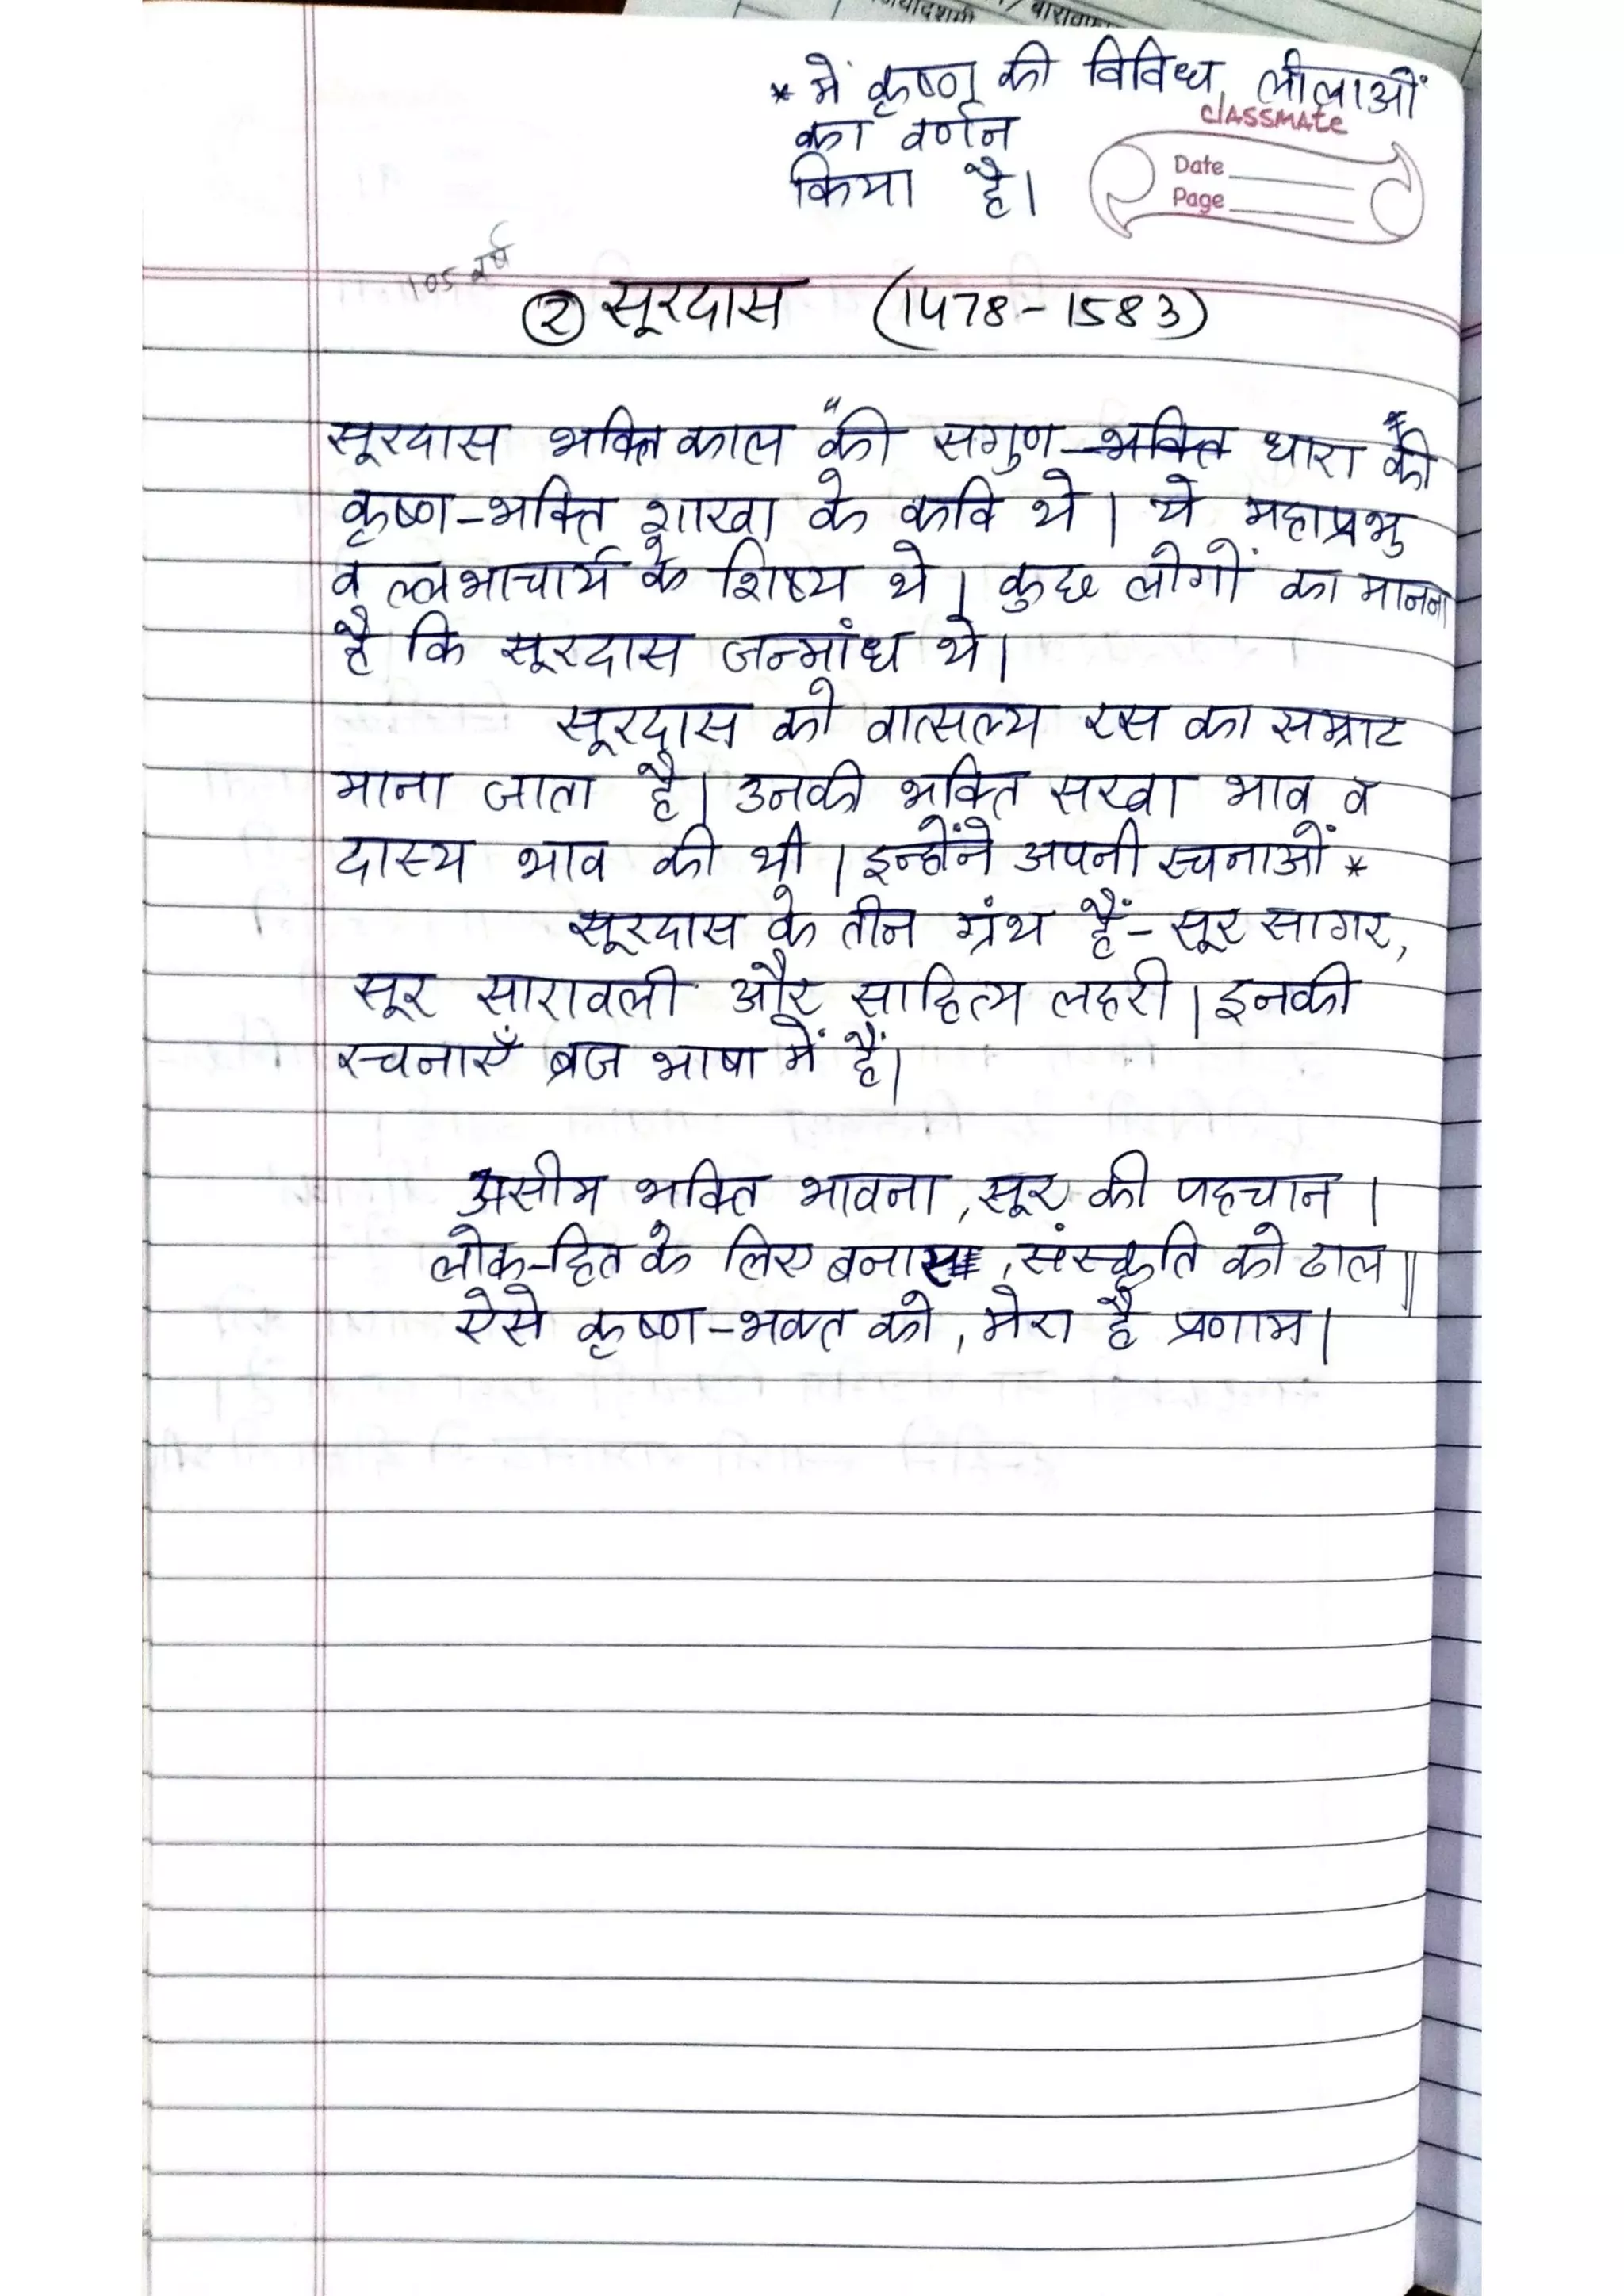 * में कृष्ण की विविध लीलाओं
का वर्णन
किया है।
classmate
Date
Page
105 वर्ष
२ सूरदास (1478-1583)
सूरदास भक्तिकाल की सगुण-भक्ति धारा की
कृष्ण-भक्ति शाखा के कवि थे। ये महाप्रभु
वल्लभाचार्य के शिष्य थे। कुछ लोगों का मानना
है कि सूरदास जन्मांध थे।
सूरदास को वात्सल्य रस का सम्राट
माना जाता है। उनकी भक्ति सखा भाव व
दास्य भाव की थी। इन्होंने अपनी रचनाओं *
सूरदास के तीन ग्रंथ हैं- सूर सागर,
सूर सारावली और साहित्य लहरी। इनकी
रचनाएँ ब्रज भाषा में हैं।
असीम भक्ति भावना, सूर की पहचान।
लोक-हित के लिए बना, संस्कृति को ढाल॥
ऐसे कृष्ण-भक्त को, मेरा है प्रणाम।